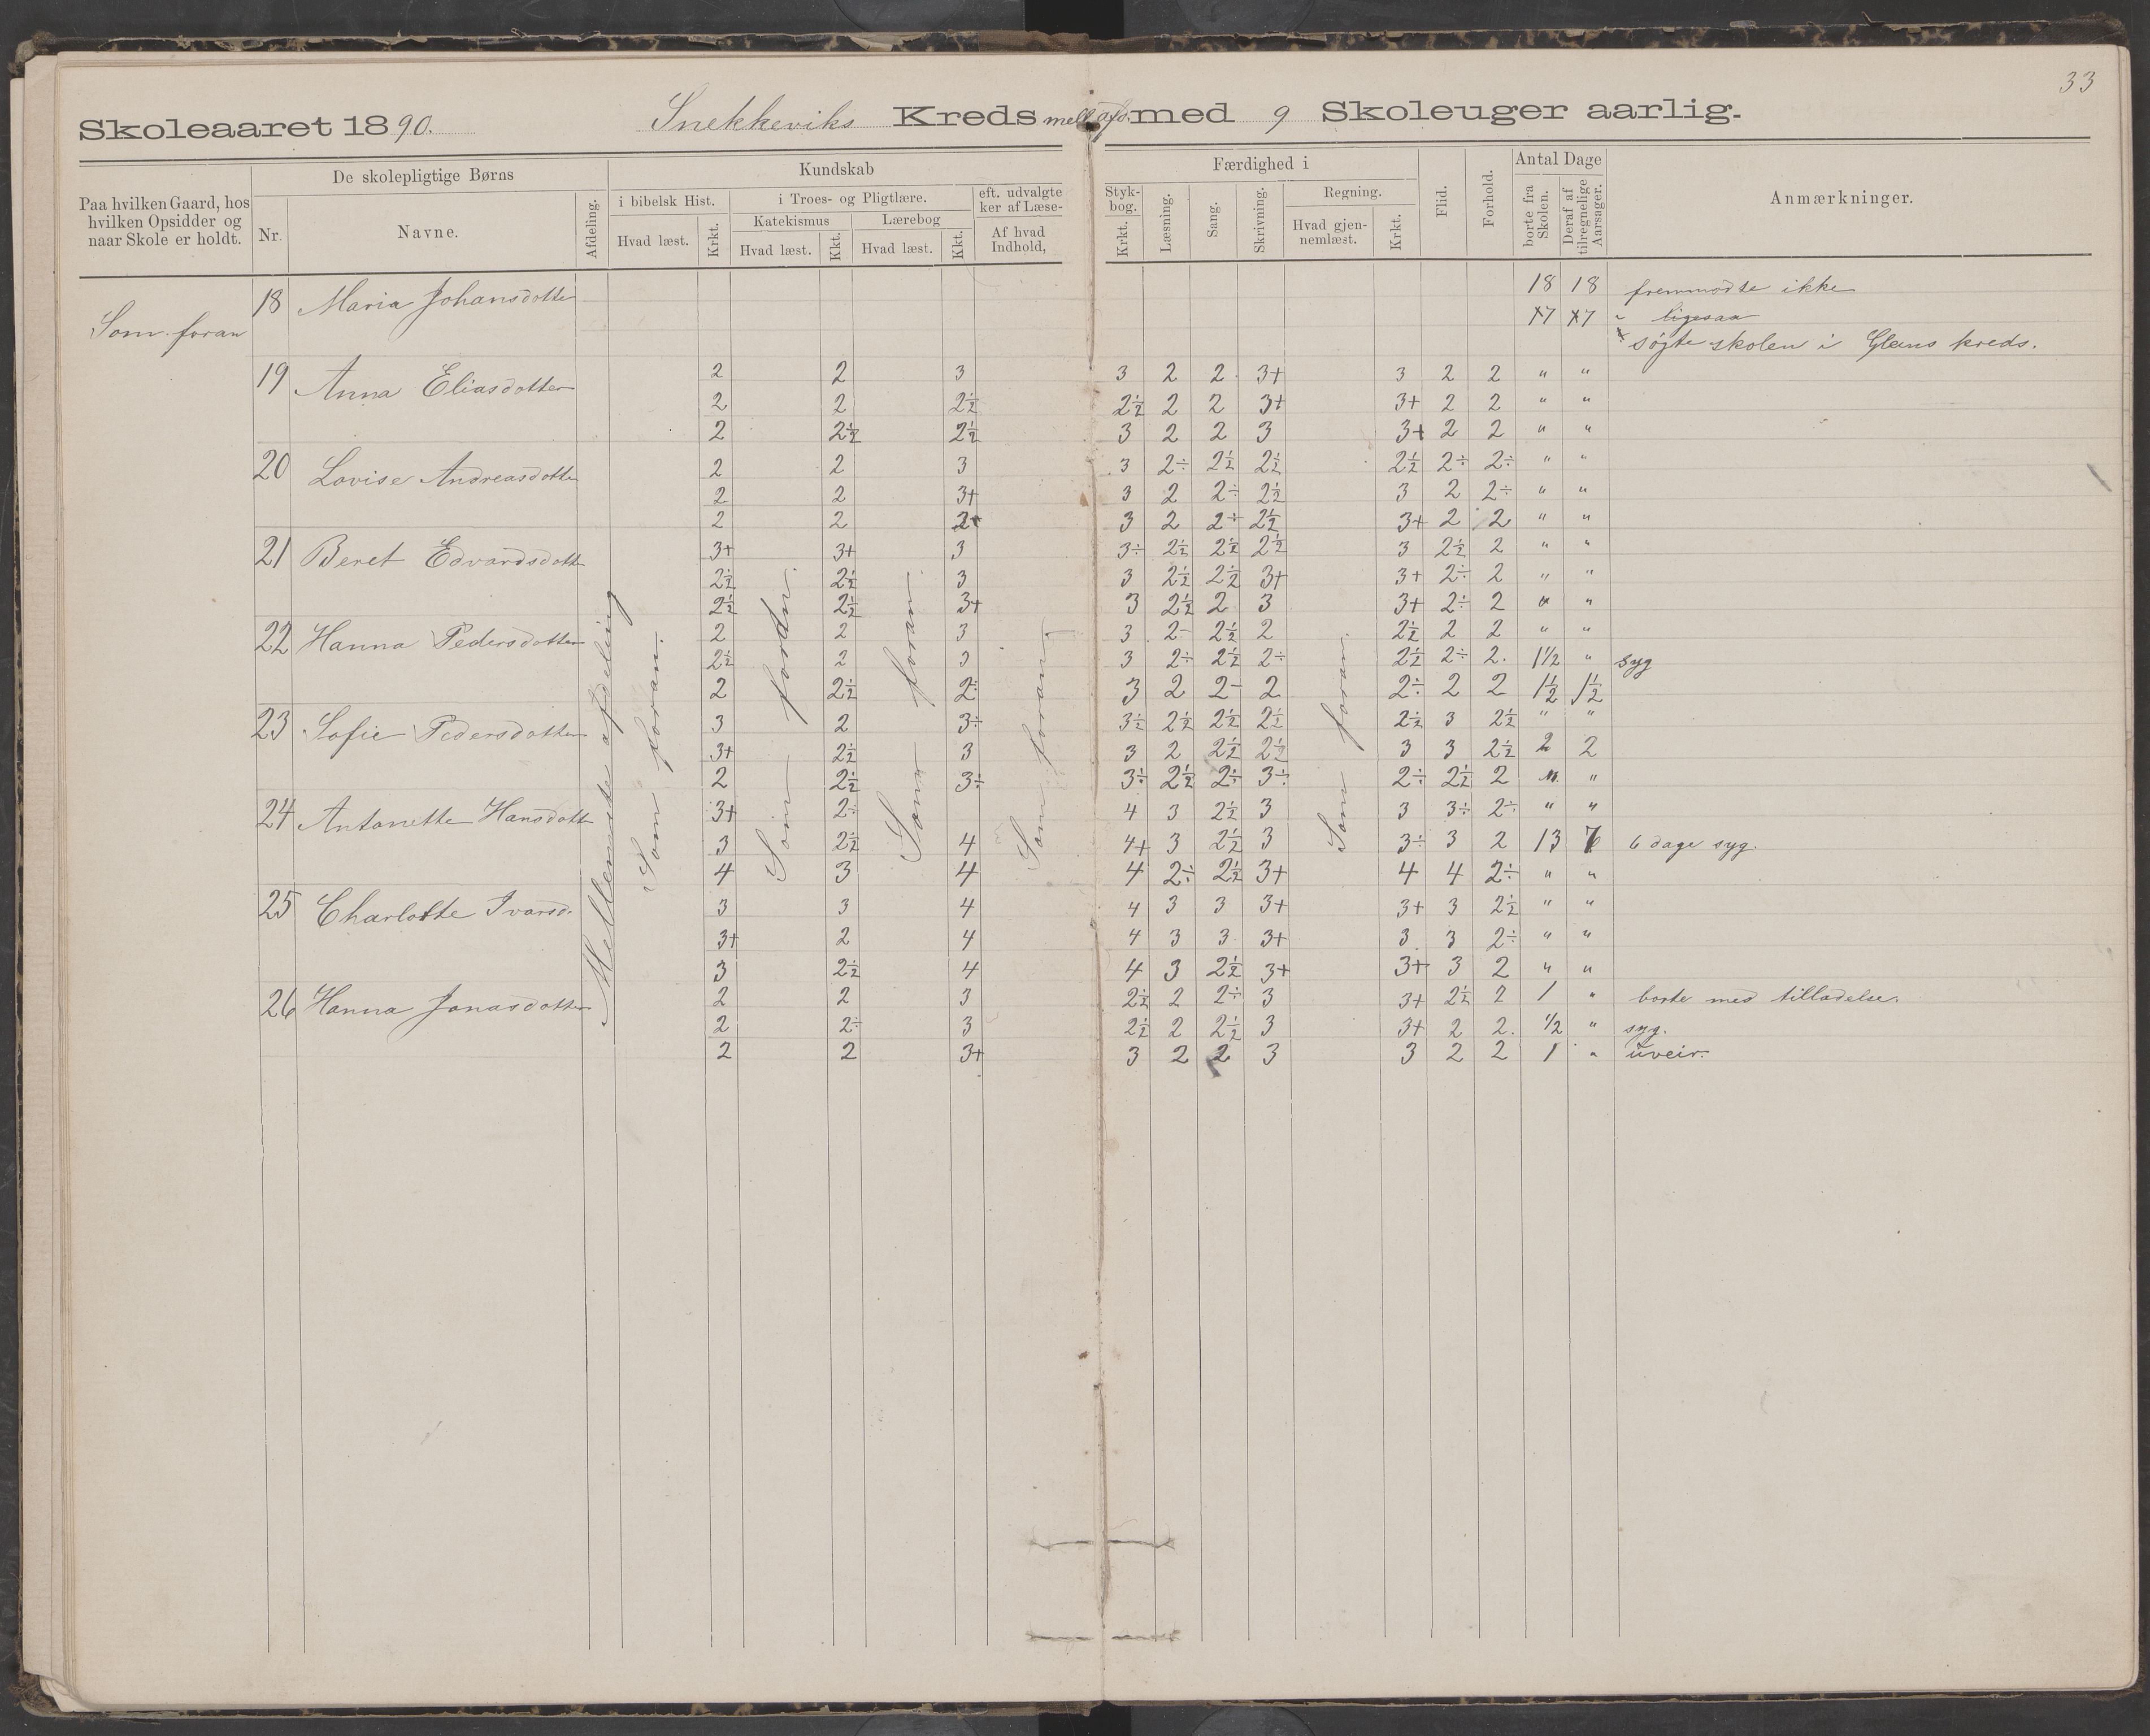 33
Skoleaaret 1890. Snekkeviks Kreds mell. afd. med 9 Skoleuger aarlig.
Paa hvilken Gaard, hos hvilken Opsidder og naar Skole er holdt.
De skolepligtige Børns
Nr. Navne.
Afdeling.
Kundskab
i bibelsk Hist.
Hvad læst. Krkt.
i Troes- og Pligtlære.
Katekismus Lærebog
Hvad læst. Kkt. Hvad læst. Kkt.
eft. udvalgte
ker af Læse-
Af hvad Indhold,
Færdighed i
Styk-
bog.
Krkt. Læsning. Sang. Skrivning.
Regning.
Hvad gjen-
nemlæst. Krkt.
Flid. Forhold.
Antal Dage
borte fra Skolen. Deraf af tilregnelige Aarsager.
Anmærkninger.
Som foran
Mellemste afdeling
Som foran.
Som foran.
Som foran.
Som foran,
Som foran.
18 Maria Johansdotter 18 18 fremmødte ikke
x7 x7 " ligesaa
x søgte skolen i Gleins kreds.
19 Anna Eliasdotter 2 2 3 3 2 2 3+ 3 2 2 " "
2 2 2½ 2½ 2 2 3+ 3+ 2 2 " "
2 2½ 2½ 3 2 2 3 3+ 2 2 " "
20 Lovise Andreasdotter 2 2 3 3 2÷ 2½ 2½ 2½ 2÷ 2÷ " "
2 2 3+ 3 2 2÷ 2½ 3 2 2÷ " "
2 2 3 2 2÷ 2½ 3+ 2 2 " "
21 Beret Edvardsdott 3+ 3+ 3 3÷ 2½ 2½ 2½ 3 2½ 2 " "
2½ 2½ 3 3 2½ 2½ 3+ 3+ 2÷ 2 " "
2½ 2½ 3+ 3 2½ 2 3 3+ 2÷ 2 " "
22 Hanna Pedersdotter 2 2 3 3 2- 2½ 2 2½ 2 2 " "
2½ 2 3 3 2÷ 2½ 2÷ 2½ 2÷ 2. 1½ " syg
2 2½ 2÷ 3 2 2- 2 2÷ 2 2 1½ 1½
23 Sofie Pedersdotter 3 2 3÷ 3½ 2½ 2½ 2½ 2½ 3 2½ " "
3+ 2½ 3 3 2 2½ 2½ 3 3 2½ 2 2
2 2½ 3÷ 3÷ 2½ 2÷ 3÷ 2÷ 2½ 2 " "
24 Antonette Hansdott 3+ 2÷ 4 3 2½ 3 3 3÷ 2÷ " "
3 2½ 4 4+ 3 2½ 3 3÷ 3 2 13 7 6 dage syg.
4 3 4 4 2÷ 2½ 3+ 4 4 2÷ " "
25 Charlotte Ivarsd. 3 3 4 4 3 3 3+ 3+ 3 2½ " "
3+ 2 4 4 3 3 3+ 3 3 2÷ " "
3 2½ 4 4 3 2½ 3+ 3+ 3 2 " "
26 Hanna Jonasdotter 2 2 3 2½ 2 2÷ 3 3+ 2½ 2 1 " borte med tilladelse.
2 2÷ 3 2½ 2 2½ 3 3+ 2 2. ½ " syg.
2 2 3+ 3 2 2 3 3 2 2 1 " uveir.